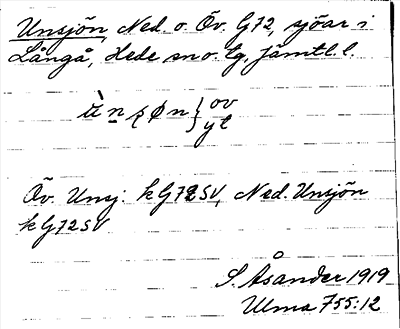 Unsjön, Ned. o. Öv. G72, sjöar i
Långå, Hede sn o. tg, Jämtl. l.
ov
yt
Öv. Unsj: kG72SV, Ned. Unsjön
kG72SV
S. Åsander 1919
Ulma 755:12